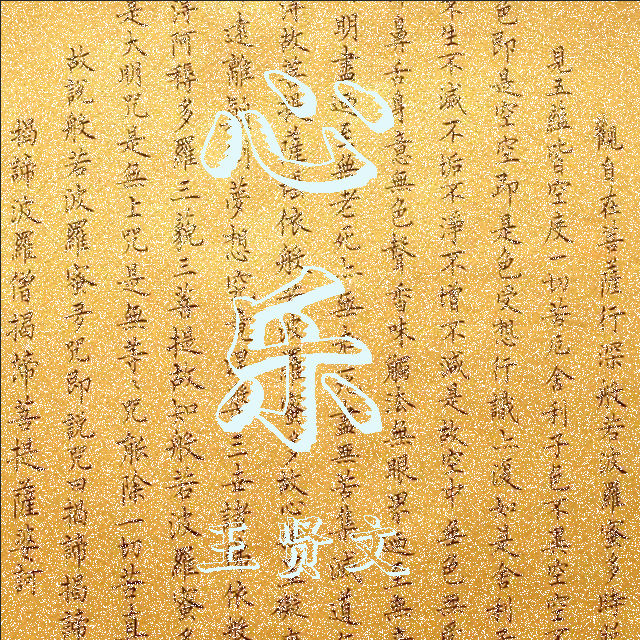 心乐
王贤文
觀自在菩薩行深般若波羅蜜多時
見五蘊皆空度一切苦厄舍利子色不異空空
色即是空空即是色受想行識亦復如是舍利子
不生不滅不垢不淨不增不減是故空中無色無
鼻舌身意無色聲香味觸法無眼界乃至無
明盡無老死亦無無苦集滅道
得故菩薩依般多故心
遠離夢想三世諸依般
得阿耨多羅三藐三菩提故知般若波羅蜜多
是大明咒是無上咒是無等〻咒能除一切苦真
故說般若波羅蜜多咒即說咒曰揭諦揭諦
揭諦波羅僧揭諦菩提薩婆訶